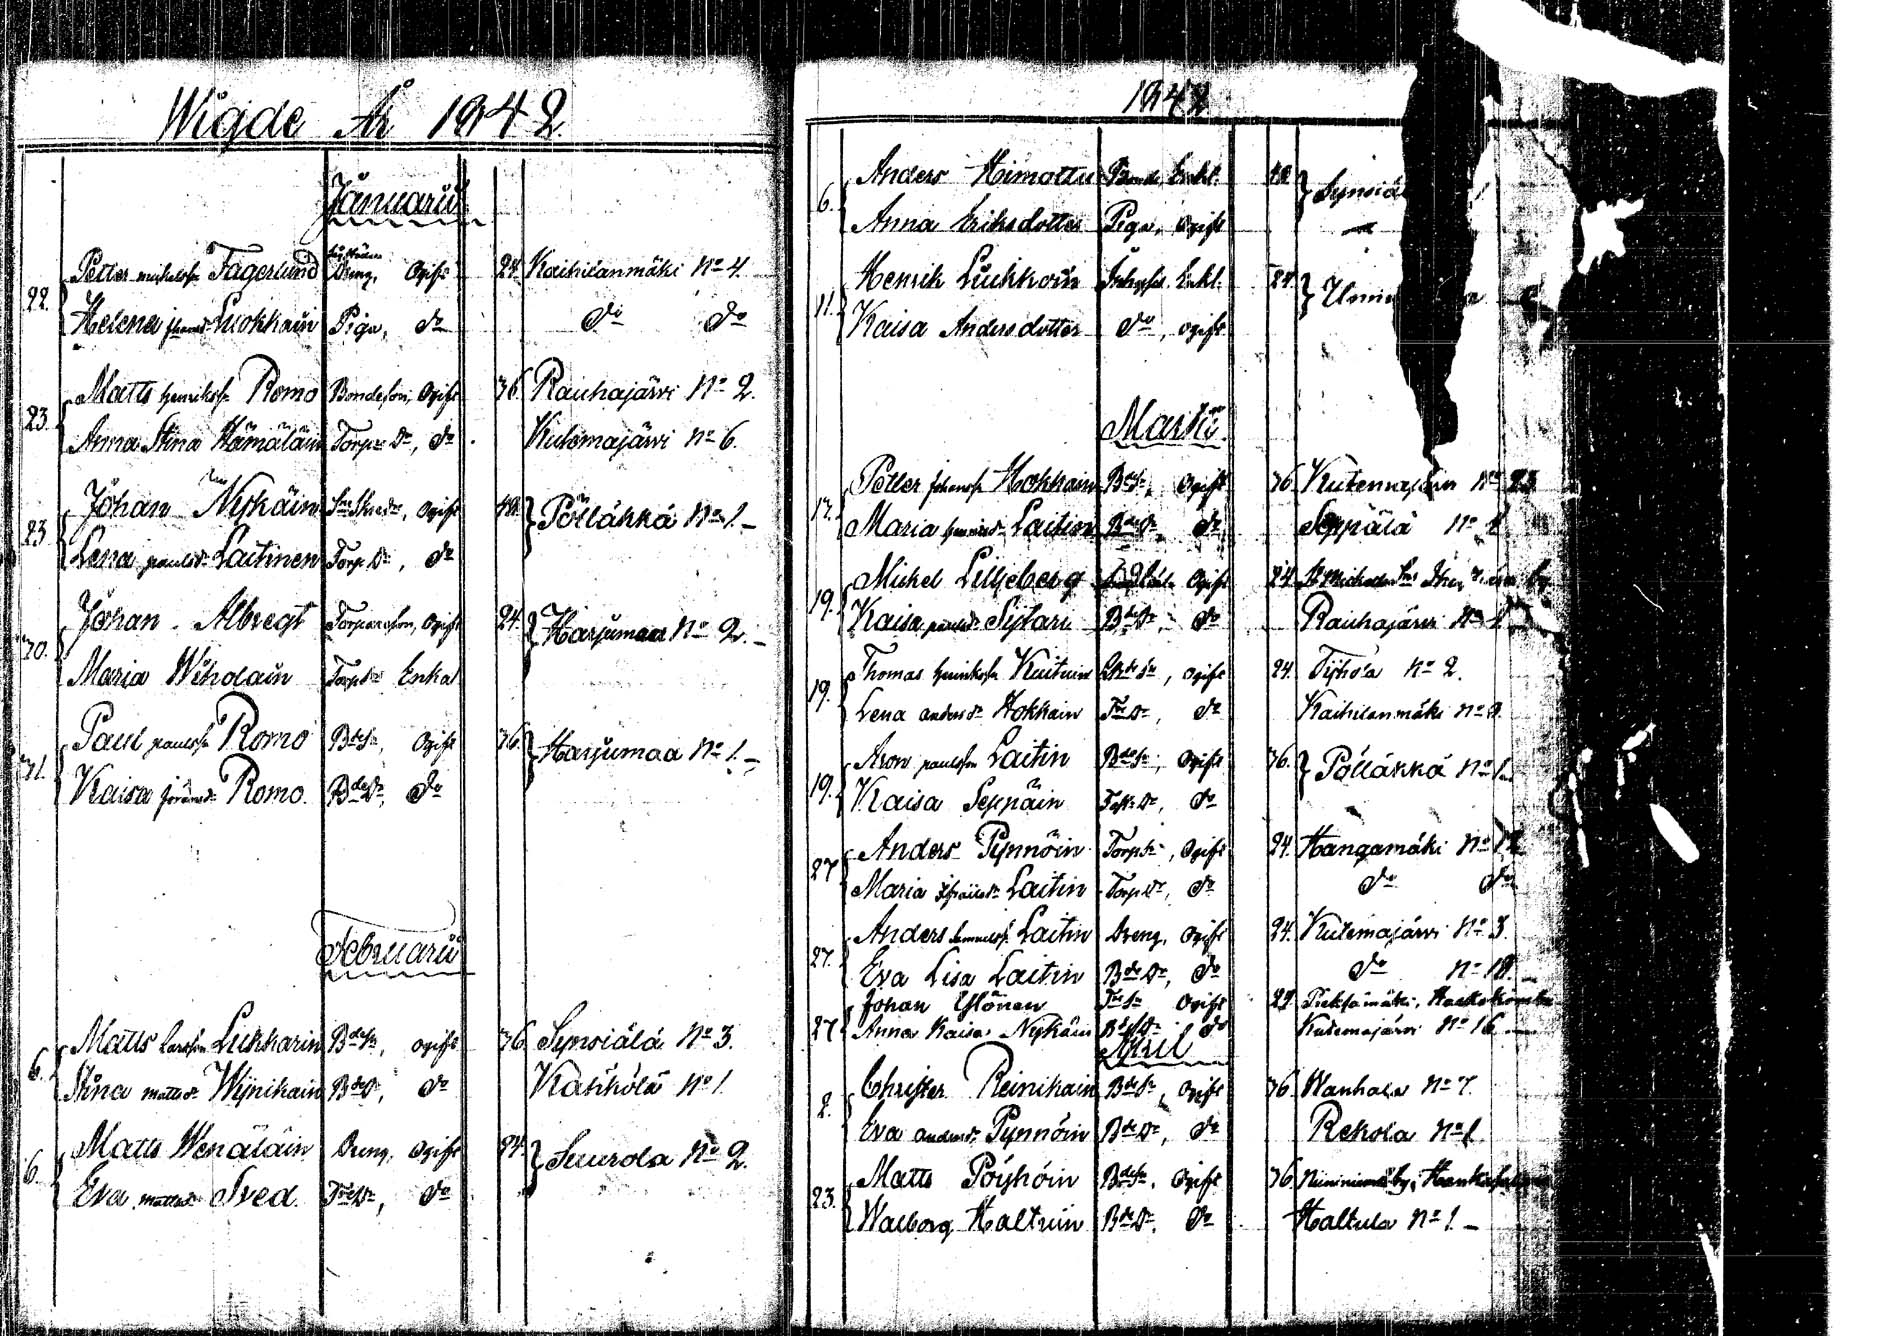 Wigde År 1842.
Januarii
22. Petter michelss: Fagerlund Dreng, Ogift 24. Kaihilanmäki No 4.
Helena Luokkain Piga, do do do
23. Matts henrikss: Romo Bondeson, Ogift 36. Rauhajärvi No 2.
Anna Stina Hämäläin Torp: Dr, do Kutemajärvi No 6.
23. Johan Nykäin Ogift 48. Pölläkkä No 1.
Lena paulsdr Laitinen Torp. Dr, do
30. Johan Albregt Torpareson, Ogift 24. Harjumaa No 2.
Maria Wiholain Torp Dr Enka
31. Paul paulss: Romo Bde Sn, Ogift 36. Harjumaa No 1.
Kaisa Romo Bde Dr, do
Februarii
6. Matts larsson Lukkarin Bde Sn, ogift 36. Synsiälä No 3.
Stina mattsdr Wijnikain Bde Dr, do No 1.
6. Matts Wenäläin Dreng, Ogift 24. Suurola No 2.
Eva mattsdr Sved Tre Dr, do
1842
6. Anders Himottu Bonde, Enkl. 48
Anna Eriksdotter Piga, ogift
11. Henrik Liukkoin Inhyses Enkl. 24.
Kaisa Andersdotter do, ogift
Martii
17. Petter johanss: Hokkain Bde Sn, Ogift 36. Kutemajärvi No 23
Maria Laitin Bde Dr, do Seppälä No
19. Michel Liljeberg Ogift 24
Kaisa paulsdr Sijtari Bde Dr, do Rauhajärvi No
19. Thomas henrikss: Kuituin ogift 24. No 2.
Lena andersdr Hokkain Tre Dr, do Kaihilanmäki No
19. Aron paulson Laitin Bde Sn, Ogift 36. Pölläkkä No 1
Kaisa Seppäin Dr, do
27. Anders Pynnöin Torp Sn, Ogift 24. Hangamäki No
Maria Laitin Torp Dr, do do do
27. Anders Samuelss: Laitin Dreng, Ogift 24. Kutemajärvi No 3.
Eva Lisa Laitin Bde Dr, do do No 18.
27 Johan Ylönen Tre Sn Ogift 24 Pieksämäki,
Anna Kaisa Nykäin Bde Dr do Kutemajärvi No 16
April
2. Christer Reinikain Bde Sn, Ogift 36. Wanhala No 7.
Eva andersdr Pynnöin Bde Dr, do Rekola No 1
23. Matts Pöyhöin Bde Sn, Ogift 36. by,
Walborg Haltuin Bde Dr, do Haltula No 1.